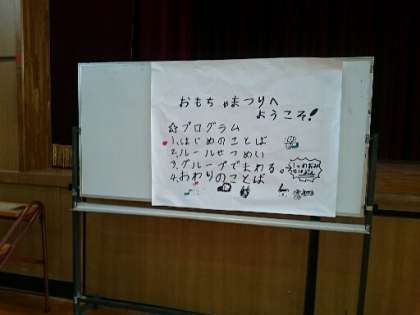 おもちゃまつりへ
ようこそ!
☆プログラム
1,はじめのことば
2,ルールせつめい
3,グループでまわる。
4,おわりのことば